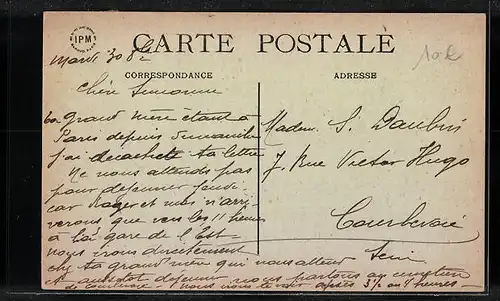 IPM
CARTE POSTALE
CORRESPONDANCE
Mardi 30
Chère Simonne
ta grand mère étant à
Paris depuis dimanche
j'ai décacheté ta lettre
Ne nous attends pas
pour déjeuner jeudi
car Roger et moi n'arri-
verons que vers les 11 heures
à la gare de l'Est
nous irons directement
chez ta grand mère qui nous attend
et aussitôt déjeuner nous partons au
nous vers 3 ½ ou 4 heures -
ADRESSE
Madem. S. Daubin
7, Rue Victor Hugo
Courbevoie
Seine